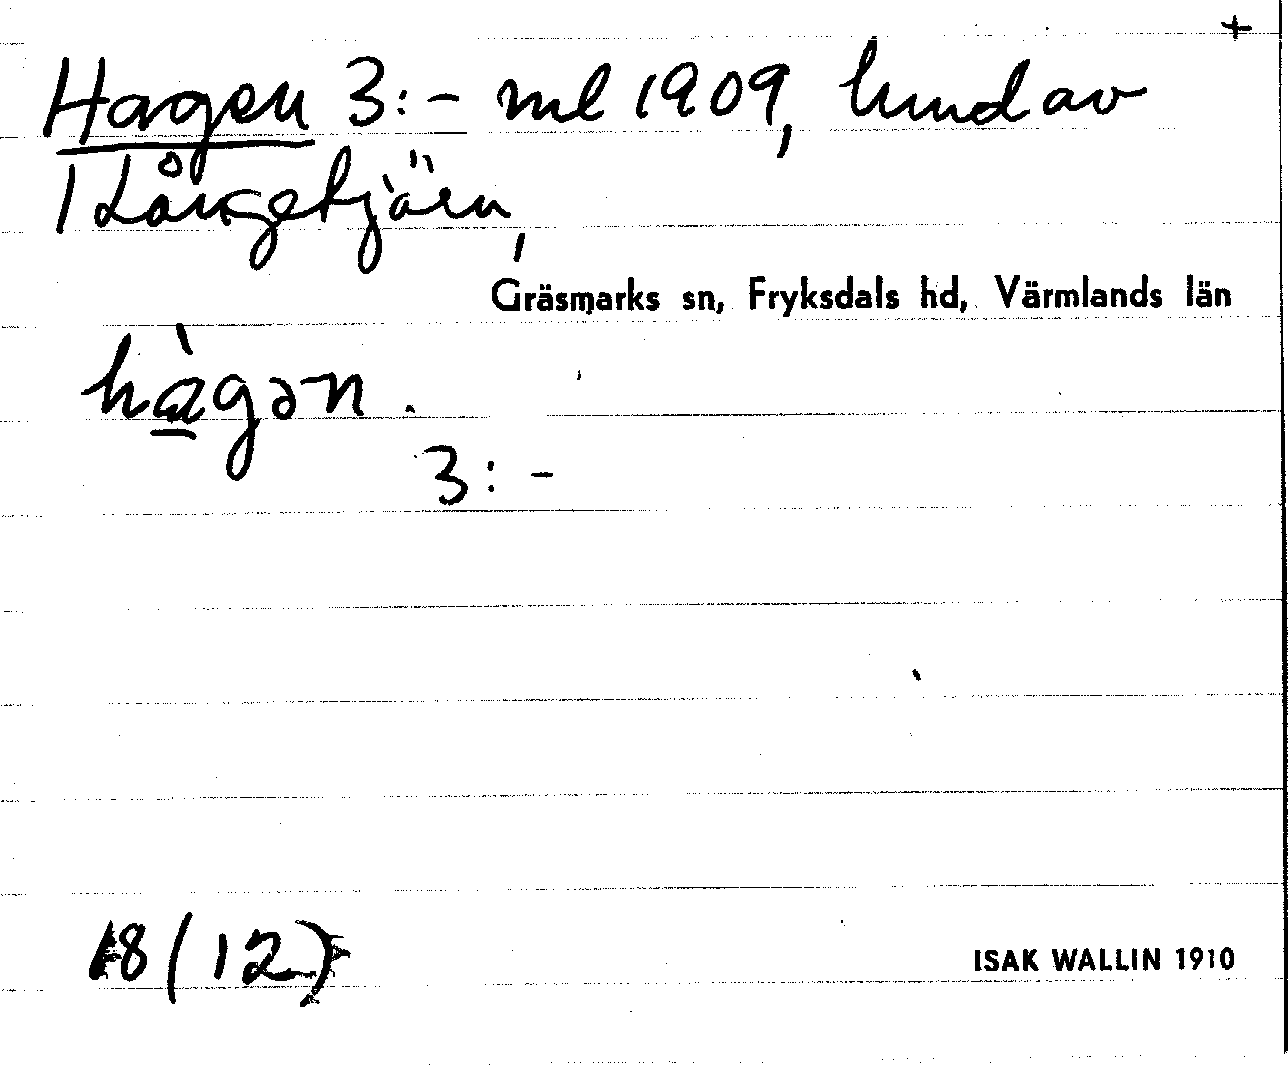 +
Hagen 3:- ml 1909, lund av
1 Långetjärn,
Gräsmarks sn, Fryksdals hd, Värmlands län
hàgən.
3:-
18 (12)
ISAK WALLIN 1910